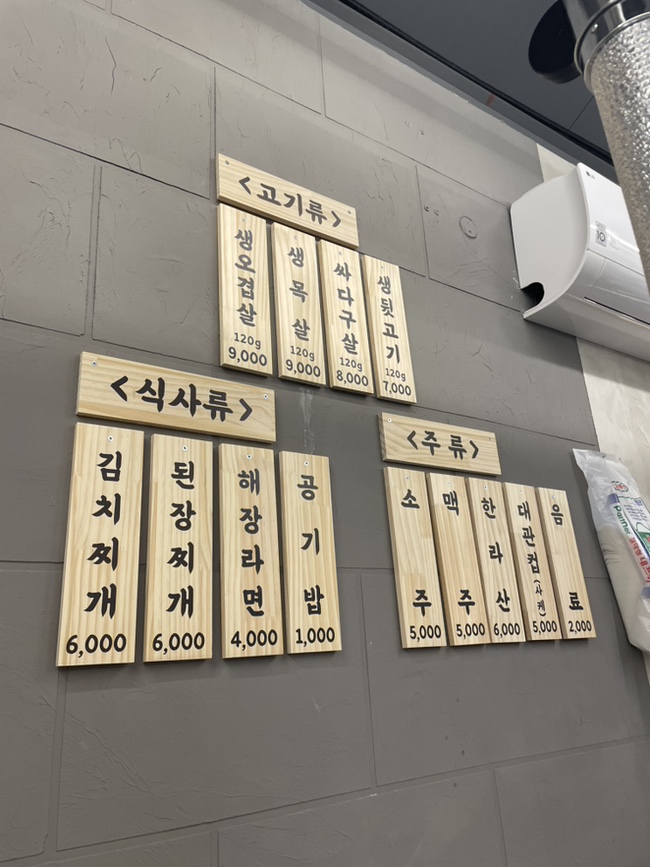 <고기류>
생오겹살
120g
9,000
생목살
120g
9,000
싸다구살
120g
8,000
생뒷고기
120g
7,000
<식사류>
김치찌개
6,000
된장찌개
6,000
해장라면
4,000
공기밥
1,000
<주류>
소주
5,000
맥주
5,000
한라산
6,000
대관컵(사케)
5,000
음료
2,000
LG